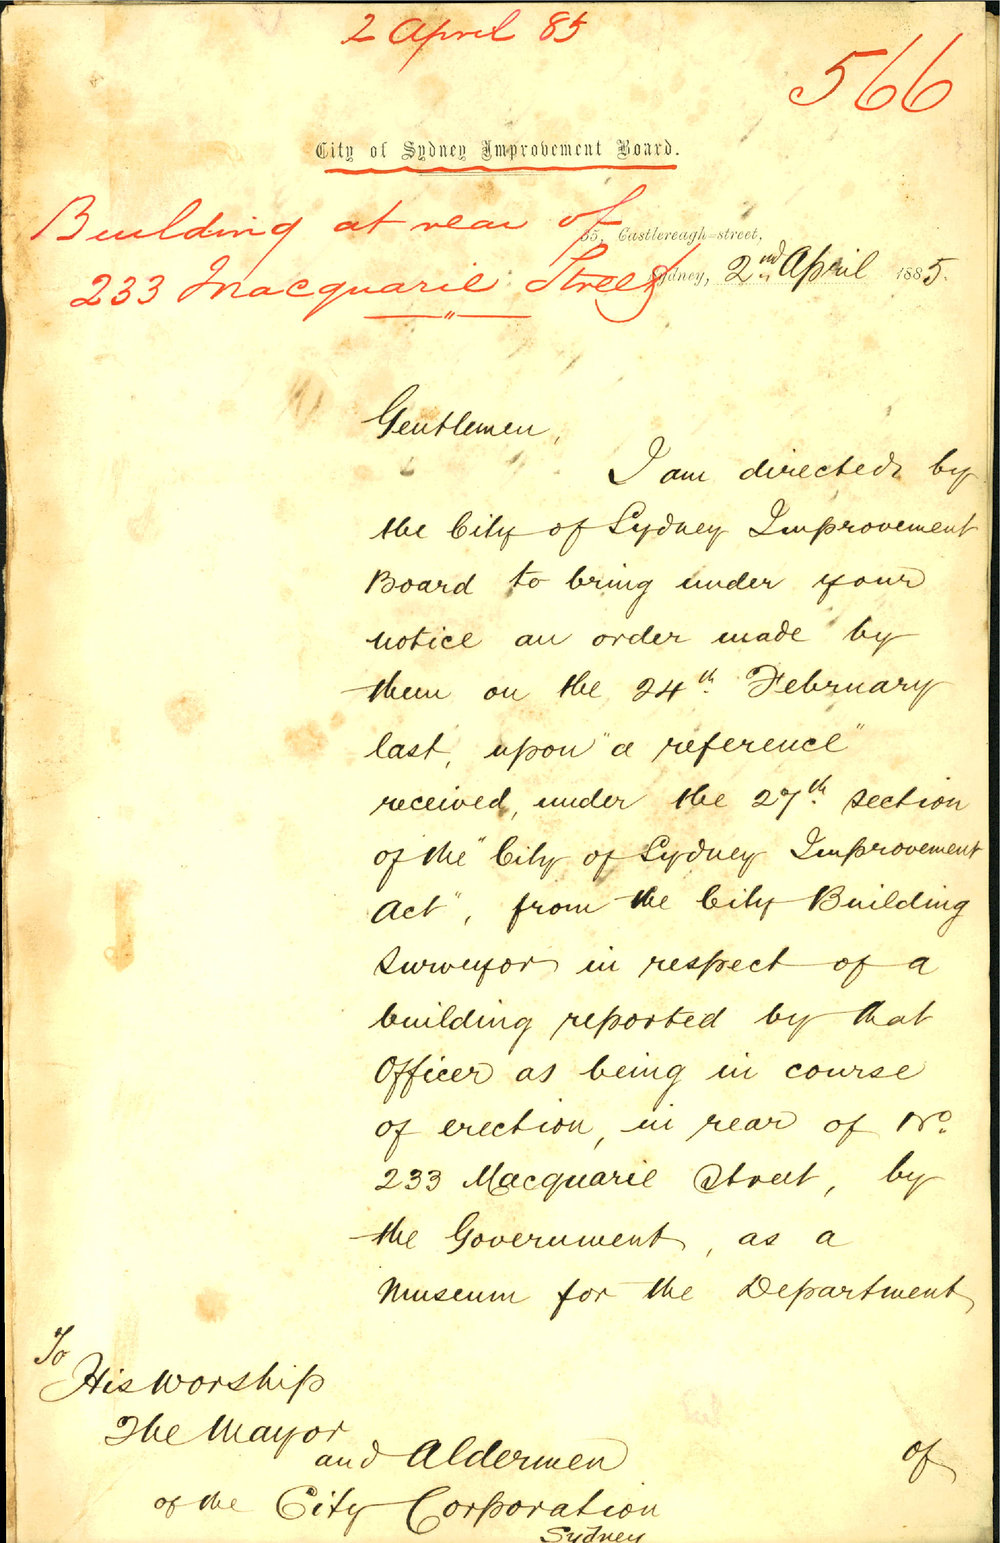 2 April 85
566
City of Sydney Improvement Board.
Building at rear of
233 Macquarie Street
"
55, Castlereagh-street,
Sydney, 2nd April 1885.
Gentlemen,
I am directed by
the City of Sydney Improvement
Board to bring under your
notice an order made by
them on the 24th. February
last, upon "a reference"
received, under the 27th. section
of the "City of Sydney Improvement
Act", from the City Building
Surveyor in respect of a
building reported by that
Officer as being in course
of erection, in rear of No.
233 Macquarie Street, by
the Government, as a
Museum for the Department
of
To
His Worship
The Mayor
and Aldermen
of the City Corporation
Sydney